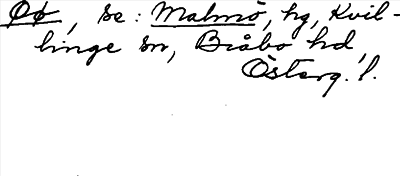 Öö, se: Malmö, hg, Kvil-
linge sn, Bråbo hd,
Österg. l.